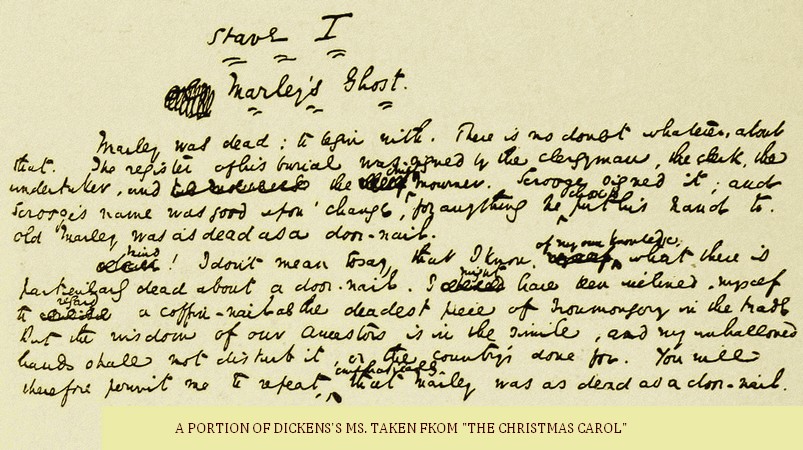 Stave I
Marley's Ghost.
Marley was dead; to begin with. There is no doubt whatever, about
that. The register of his burial was signed by the clergyman, the clerk, the
undertaker, and the chief mourner. Scrooge signed it; and
Scrooge's name was good upon 'change, for anything he chose to put his hand to.
Old Marley was as dead as a door-nail.
Mind! I don't mean to say, that I know, of my own knowledge, what there is
particularly dead about a door-nail. I might have been inclined, myself
to regard a coffin-nail as the deadest piece of Ironmongery in the trade
But the wisdom of our Ancestors is in the simile, and my unhallowed
hands shall not disturb it, or the Country's done for. You will
therefore permit me to repeat, emphatically, that Marley was as dead as a door-nail.
A PORTION OF DICKENS'S MS. TAKEN FKOM "THE CHRISTMAS CAROL"